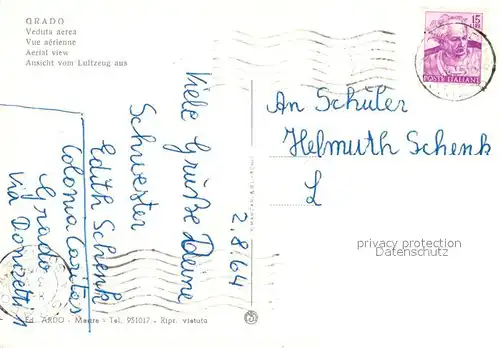 GRADO
Veduta aerea
Vue aérienne
Aerial view
Ansicht vom Luftzeug aus
15
LIRE
POSTE ITALIANE
An Schüler
Helmuth Schenk
L
privacy protection
Datenschutz
2.8.64
Viele Grüße Deine
Schwester
Edith Schenk
Colonia Caritas
Grado
Via Donizetti 1
Ed. ARDO - Mestre - Tel. 951017 - Ripr. vietata